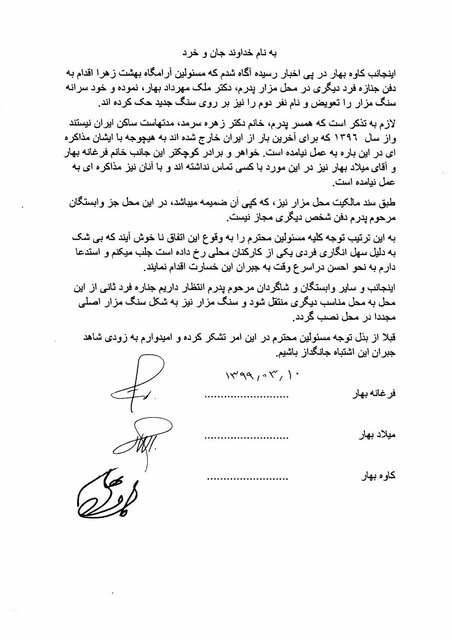 به نام خداوند جان و خرد
اینجانب کاوه بهار در پی اخبار رسیده آگاه شدم که مسئولین آرامگاه بهشت زهرا اقدام به
دفن جنازه فرد دیگری در محل مزار پدرم، دکتر ملک مهرداد بهار، نموده و خود سرانه
سنگ مزار را تعویض و نام نفر دوم را نیز بر روی سنگ جدید حک کرده اند.
لازم به تذکر است که همسر پدرم، خانم دکتر زهره سرمد، مدتهاست ساکن ایران نیستند
واز سال ۱۳۹۶ که برای آخرین بار از ایران خارج شده اند به هیچوجه با ایشان مذاکره
ای در این باره به عمل نیامده است. خواهر و برادر کوچکتر این جانب خانم فرغانه بهار
و آقای میلاد بهار نیز در این مورد با کسی تماس نداشته اند و با آنان نیز مذاکره ای به
عمل نیامده است.
طبق سند مالکیت محل مزار نیز، که کپی آن ضمیمه میباشد، در این محل جز وابستگان
مرحوم پدرم دفن شخص دیگری مجاز نیست.
به این ترتیب توجه کلیه مسئولین محترم را به وقوع این اتفاق نا خوش آیند که بی شک
به دلیل سهل انگاری فردی یکی از کارکنان محلی رخ داده است جلب میکنم و استدعا
دارم به نحو احسن دراسرع وقت به جبران این خسارت اقدام نمایند.
اینجانب و سایر وابستگان و شاگردان مرحوم پدرم انتظار داریم جنازه فرد ثانی از این
محل به محل مناسب دیگری منتقل شود و سنگ مزار نیز به شکل سنگ مزار اصلی
مجددا در محل نصب گردد.
قبلا از بذل توجه مسئولین محترم در این امر تشکر کرده و امیدوارم به زودی شاهد
جبران این اشتباه جانگداز باشیم.
۱۳۹۹،۰۳،۱۰
فرغانه بهار ..........................
میلاد بهار ..........................
کاوه بهار ..........................